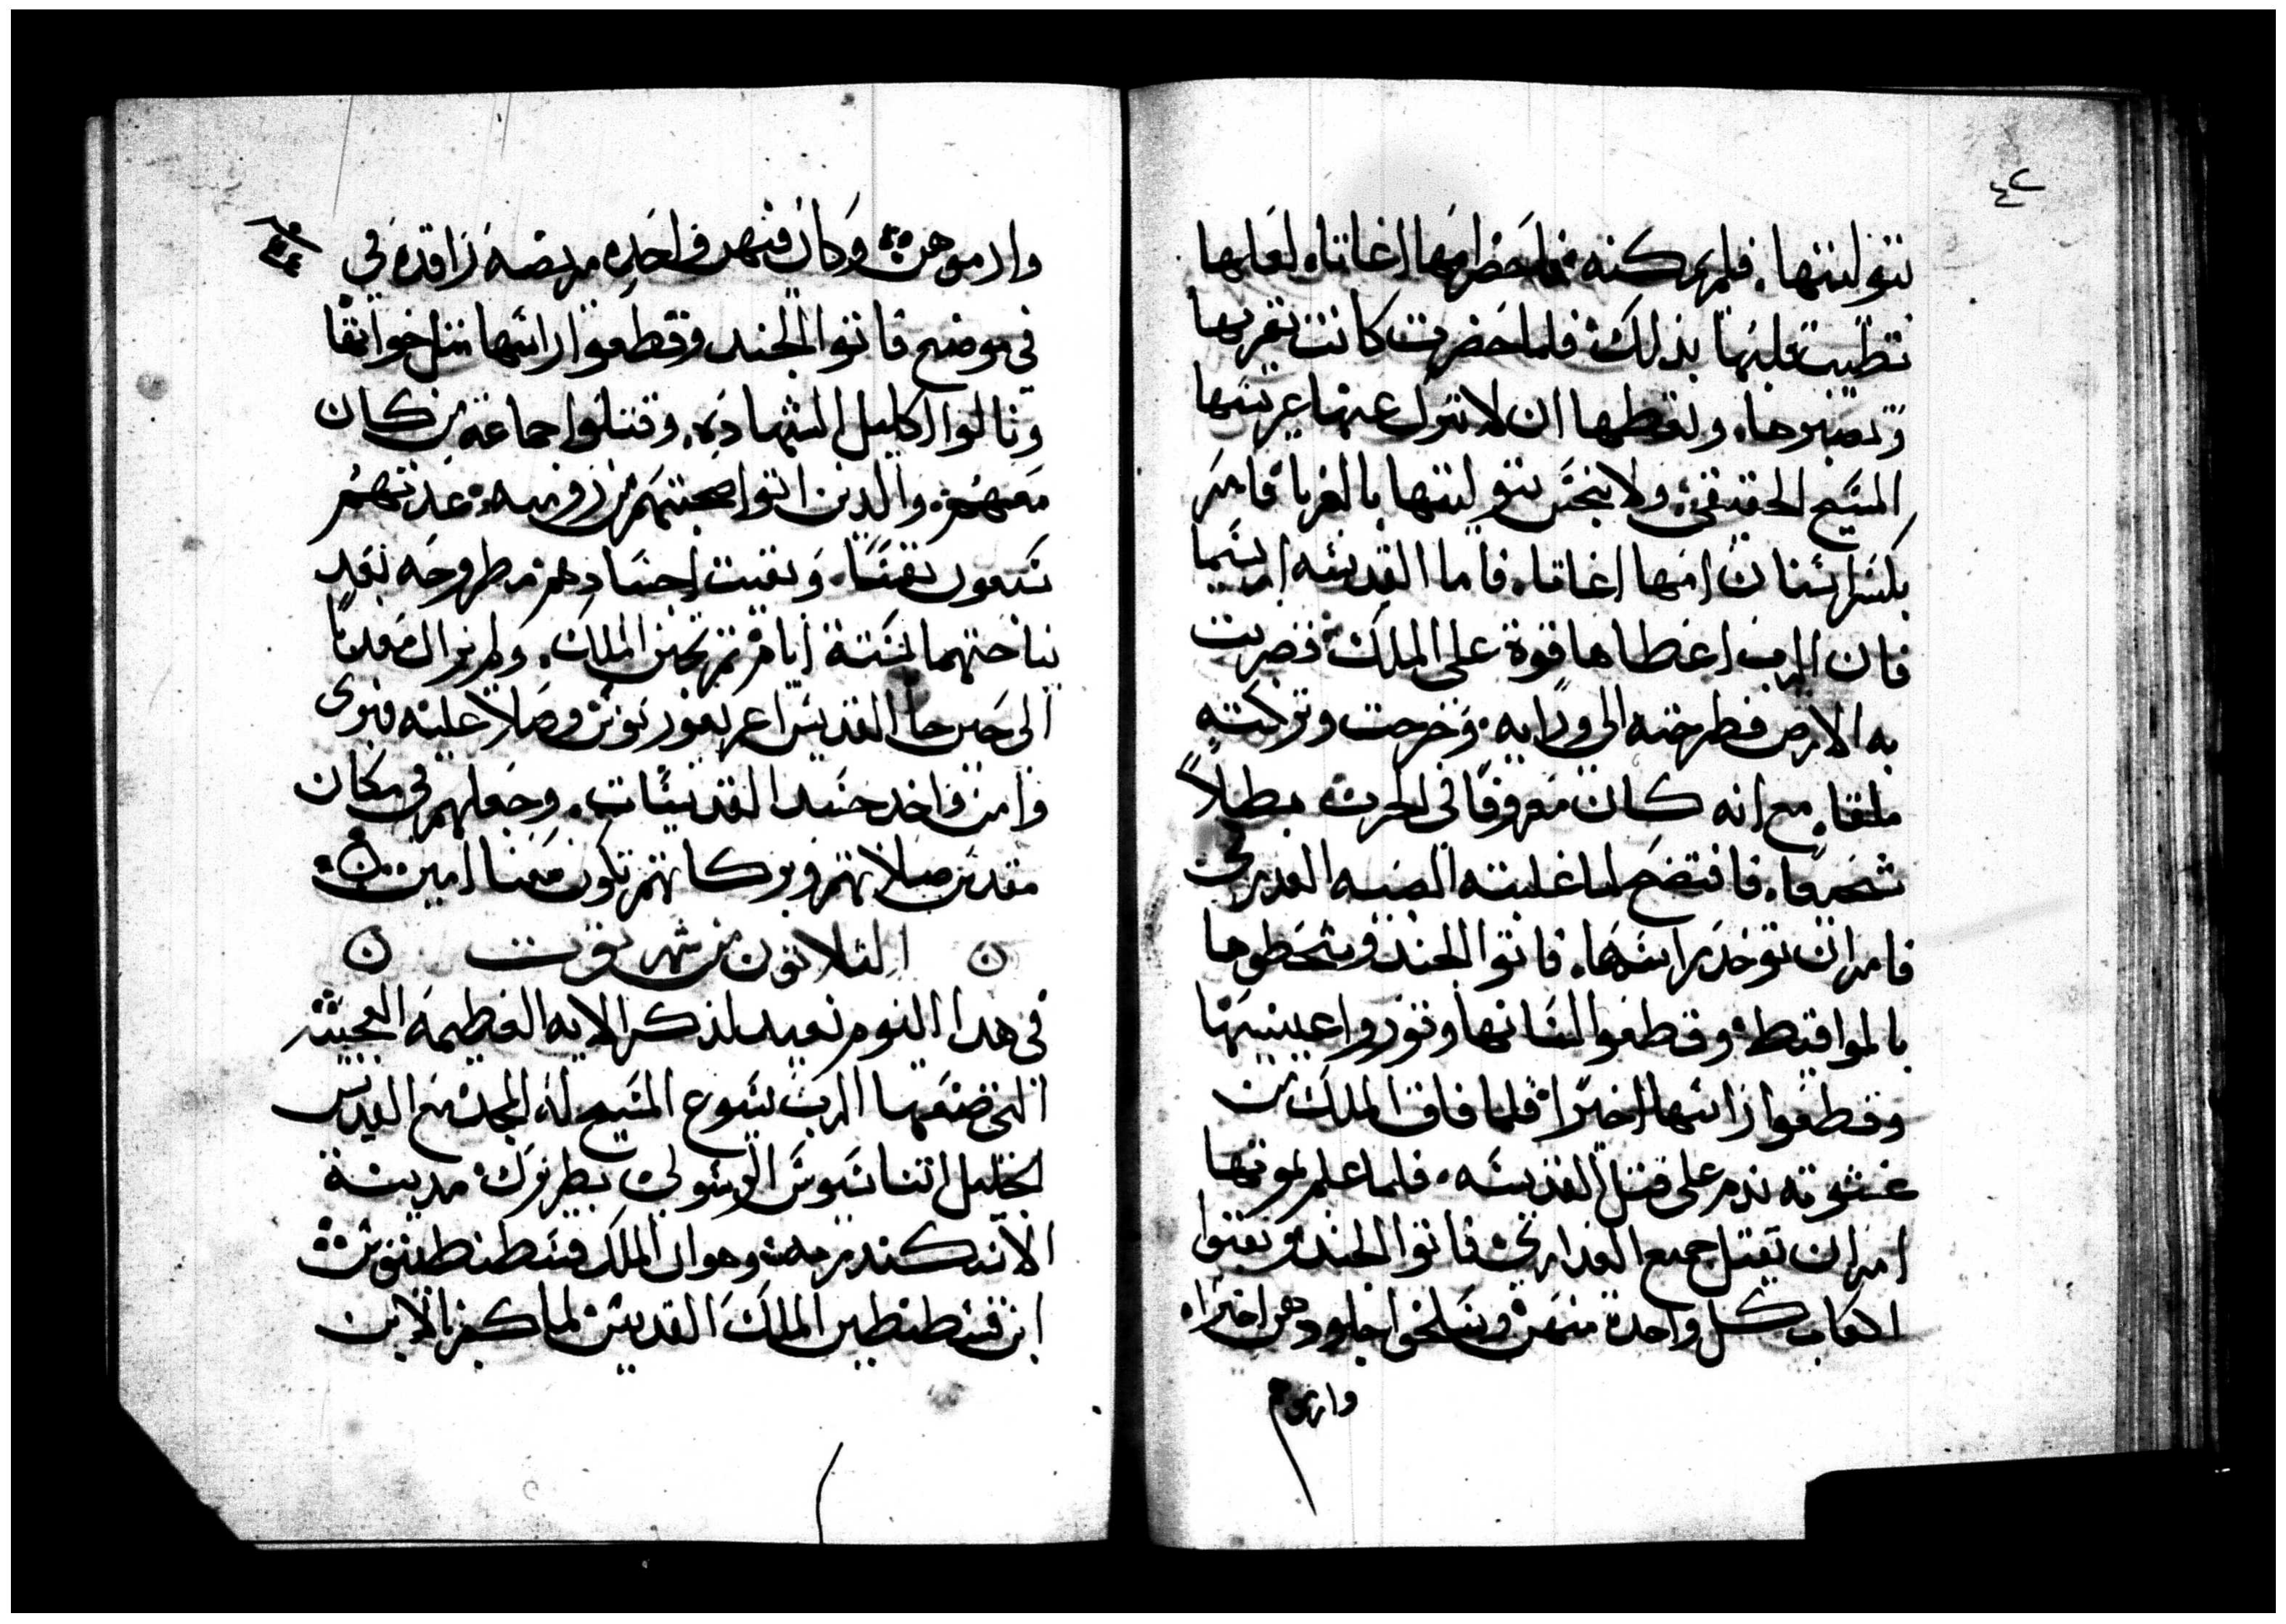 ٤٢
بتوليتها. فلم يمكنه فاحضر امها اغاتا. لعلها
تطيب قلبها بذلك فلما حضرت كانت تعزيها
وتصبرها. وتعظها ان لا تترك عنها عريسها
المسيح الحقيقي. ولا ينجس بتوليتها بالغربا فامر
بكسر اسنان امها اغاتا. فاما القديسه اربسيما
فان الرب اعطاها قوة على الملك فضربت
به الارض فطرحته الى ورايه. وخرجت وتركته
ملقا. مع انه كان معروفا في الحرب بطلاً
شجيعا. فافتضح لما غلبته الصبيه العدرى
فامر ان توخد راسها. فاتوا الجند وشحطوها
بالمواقيط وقطعوا لسانها وتوروا عينيها
وقطعوا راسها اخيرا فلما فاق الملك من
عشوته ندم على قتل القديسه. فلما علم بموتها
امر ان تقتل جميع العدارى فاتوا الجند وتقبوا
اكعاب كل واحدة منهن وسلخوا جلودهن اخيرا.
وارموا
وارموهن وكان فيهن واحده مريضه راقده في
في موضع فاتوا الجند وقطعوا راسها مثل اخواتها
ونالوا اكليل الشهاده. وقتلوا جماعة من كان
معهم. والدين اتوا صحبتهم من روميه. عدتهم
سبعون نفسا. وبقيت اجسادهم مطروحه بعد
نياحتهما ستة ايام تم تجنن الملك. ولم يزال معدبا
الى حين جا القديس اغريغوريوس وصلا عليه فبرى
وامن واخد جسد القديسات. وجعلهم في مكان
مقدس صلاتهم وبركاتهم تكون معنا امين
الثلاتون من شهر توت
في هدا اليوم نعيد لذكر الايه العظيمه العجيبه
التي صنعها الرب يسوع المسيح له المجد مع القديس
الجليل اتناسيوس الرسولي بطريرك مدينة
الاسكندريه وهو ان الملك قسطنطينوس
ابن قسطنطين الملك القديس لما كفر بالابن